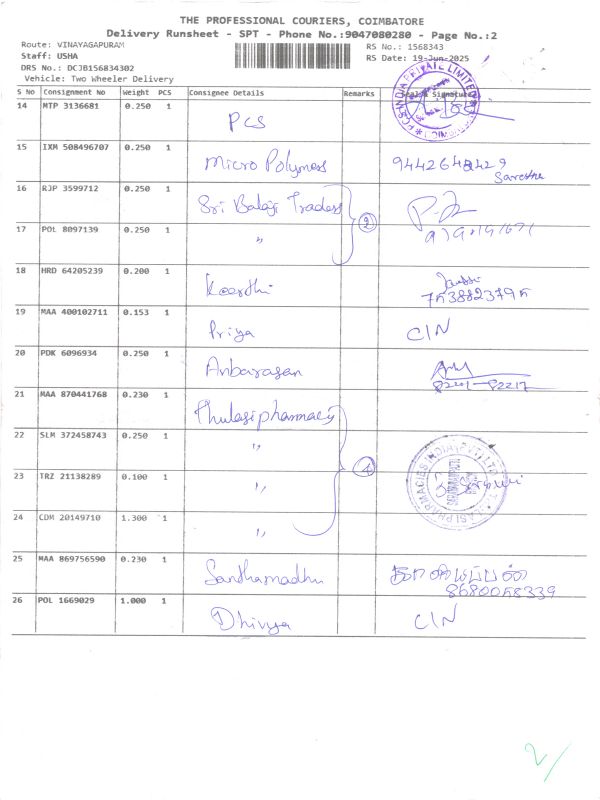 THE PROFESSIONAL COURIERS, COIMBATORE
Delivery Runsheet - SPT - Phone No.:9047080280 - Page No.:2
Route: VINAYAGAPURAM RS No.: 1568343
Staff: USHA RS Date: 19-Jun-2025
DRS No.: DCJB156834302
Vehicle: Two Wheeler Delivery
S No Consignment No Weight PCS Consignee Details Remarks
14 MTP 3136681 0.250 1 PCS
15 IXM 508496707 0.250 1 Micro Polymers 9442648429
16 RJP 3599712 0.250 1 Sri Balaji Traders 2
17 POL 8097139 0.250 1 "
18 HRD 64205239 0.200 1 Keerthi
19 MAA 400102711 0.153 1 Priya CIN
20 PDK 6096934 0.250 1 Anbarasan
21 MAA 870441768 0.230 1 Thulasi pharmacy
22 SLM 372458743 0.250 1 "
23 TRZ 21138289 0.100 1 "
24 CDM 20149710 1.300 1 "
25 MAA 869756590 0.230 1 Santhamadhu
8680058339
26 POL 1669029 1.000 1 Dhivya CIN
2/